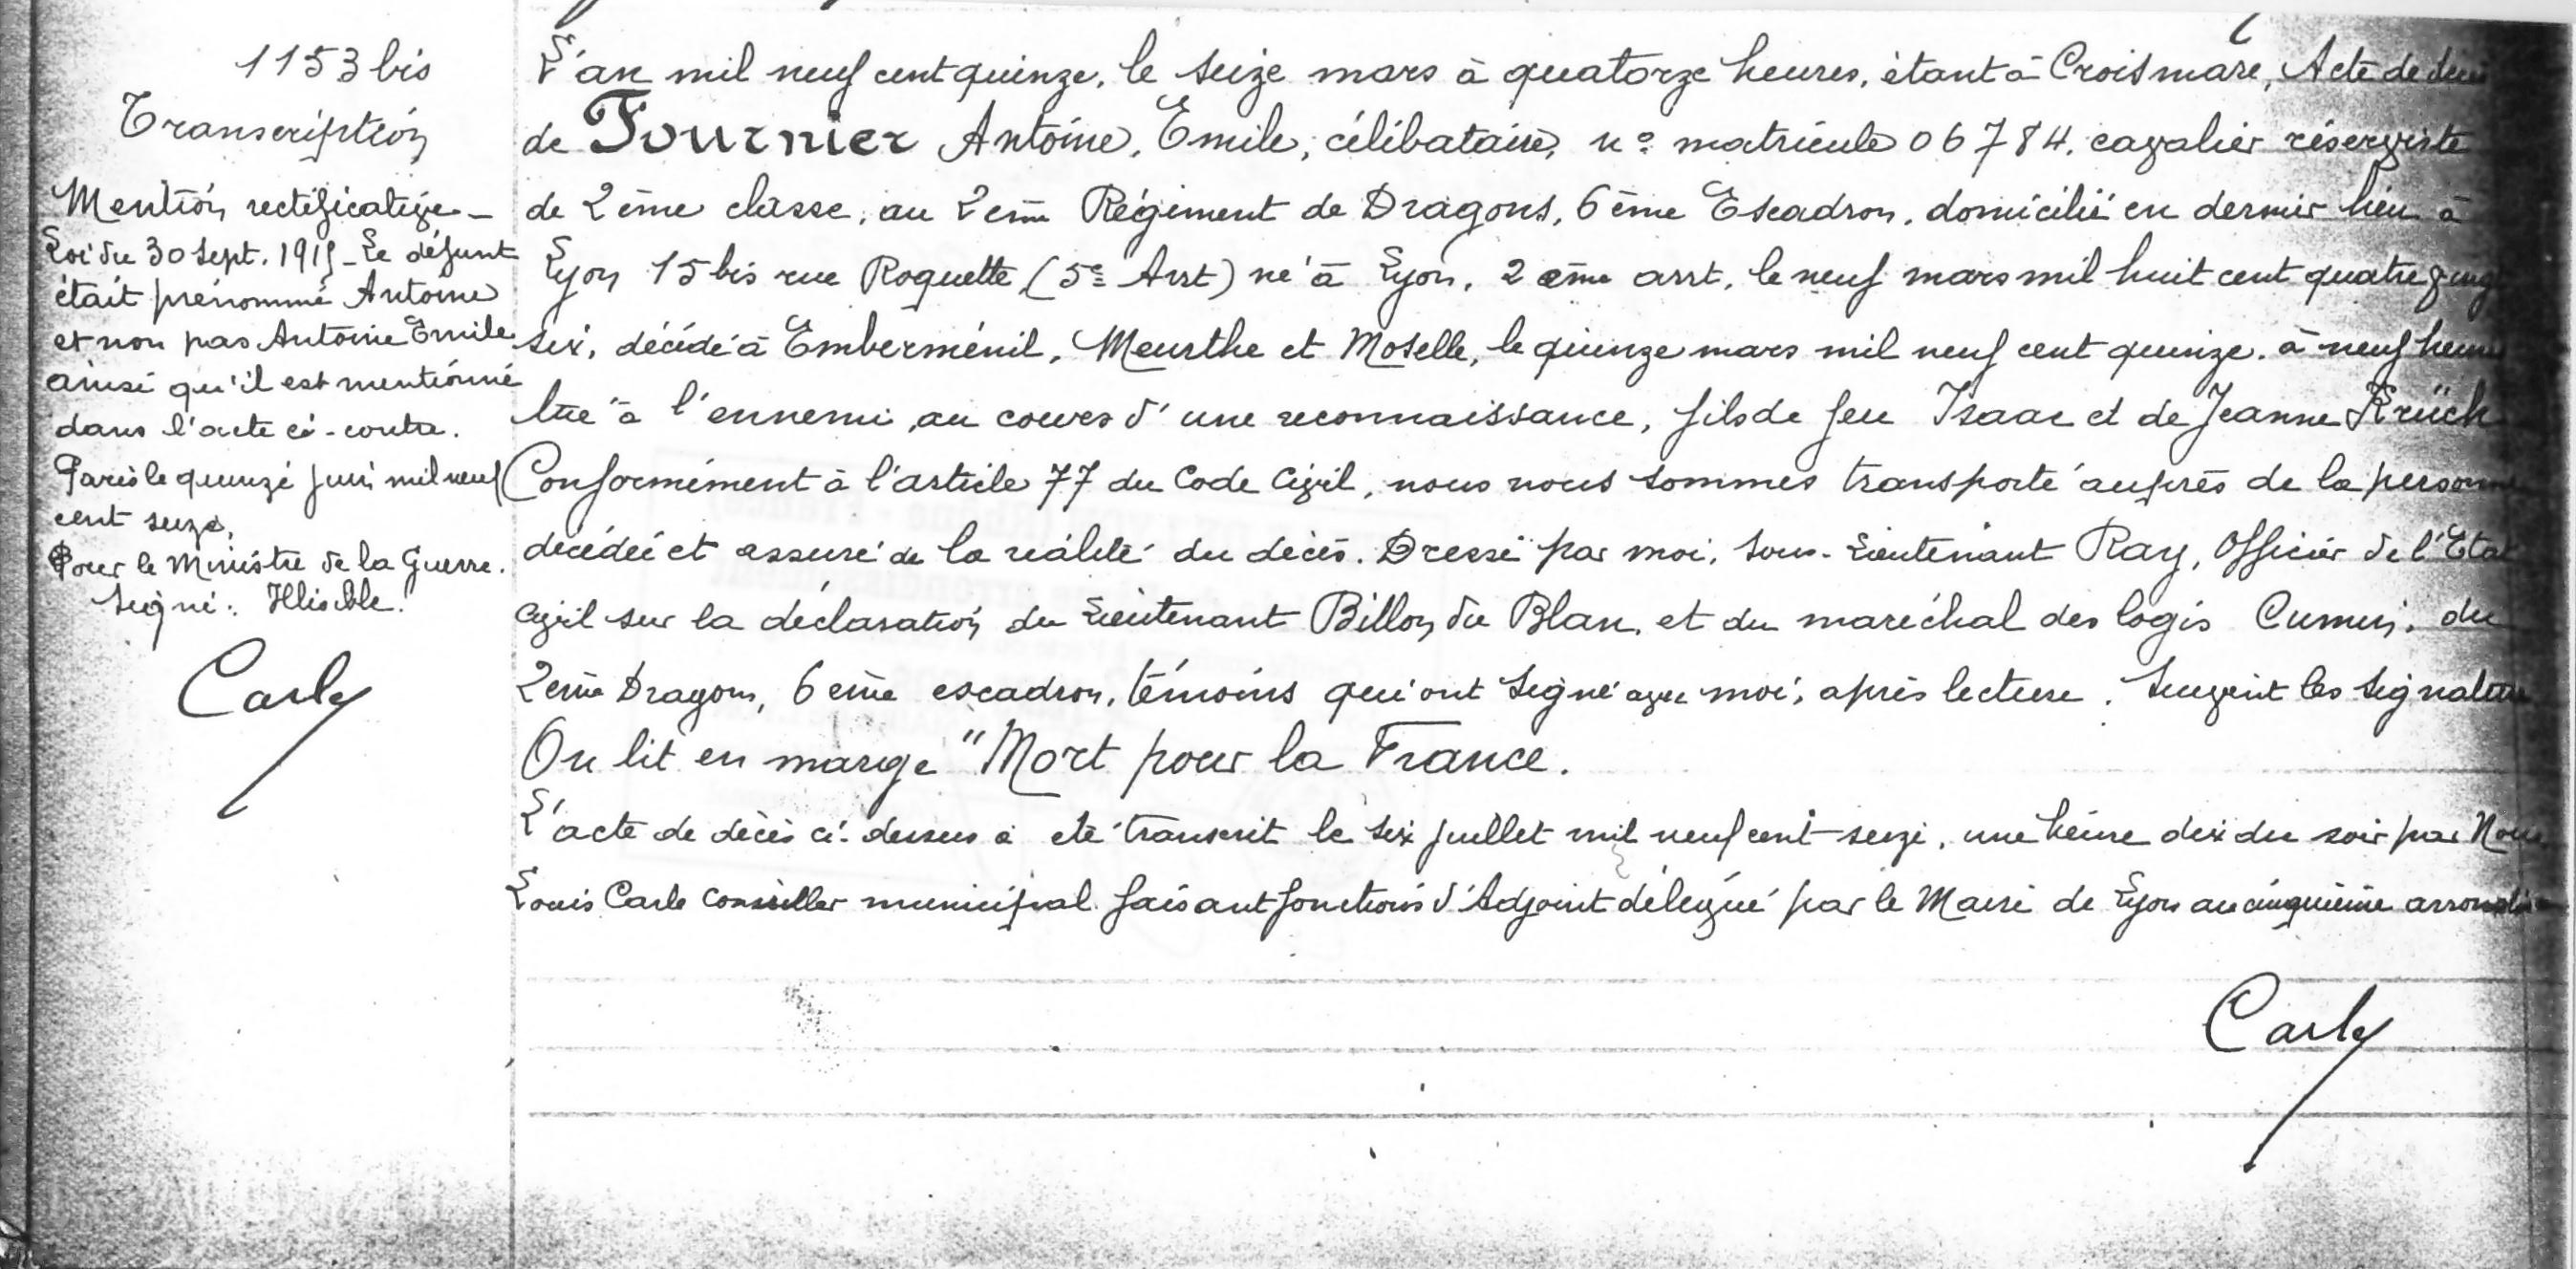 1153 bis
Transcription
Mention rectificative_
Loi du 30 Sept. 1915_Le défunt
était prénommé Antoine
et non pas Antoine Emile
ainsi qu'il est mentionné
dans l'acte ci-contre.
Paris le quinze juin mil neuf
cent seize,
Pour le Ministre de la Guerre.
Signé: Illisible.
L'an mil neuf cent quinze, le seize mars à quatorze heures, étant à Croismare, Acte de décès
de Fournier Antoine, Emile, célibataire, n° matricule 06784, cavalier réserviste
de 2ème classe, au 2ème Régiment de Dragons, 6ème Escadron, domicilié en dernier lieu à
Lyon 15 bis rue Roquette (5e Arrt) né à Lyon, 2ème arrt, le neuf mars mil huit cent quatre vingt
six, décédé à Emberménil, Meurthe et Moselle, le quinze mars mil neuf cent quinze. à neuf heures
tué à l'ennemi, au cours d'une reconnaissance, fils de feu Isaac et de Jeanne Krüch
Conformément à l'article 77 du Code Civil, nous nous sommes transporté auprès de la personne
décédée et assuré de la réalité du décès. Dressé par moi, Sous-Lieutenant Ray, Officier de l'Etat
Civil sur la déclaration du Lieutenant Billon du Plan, et du maréchal des logis Cumin, du
2ème Dragons, 6ème escadron, témoins qui ont signé avec moi, après lecture. Suivent les signatures
On lit en marge "Mort pour la France.
L'acte de décès ci-dessus a été transcrit le six juillet mil neuf cent-seize, une heure dix du soir par Nous
Louis Carle conseiller municipal faisant fonctions d'Adjoint délégué par le Maire de Lyon au cinquième